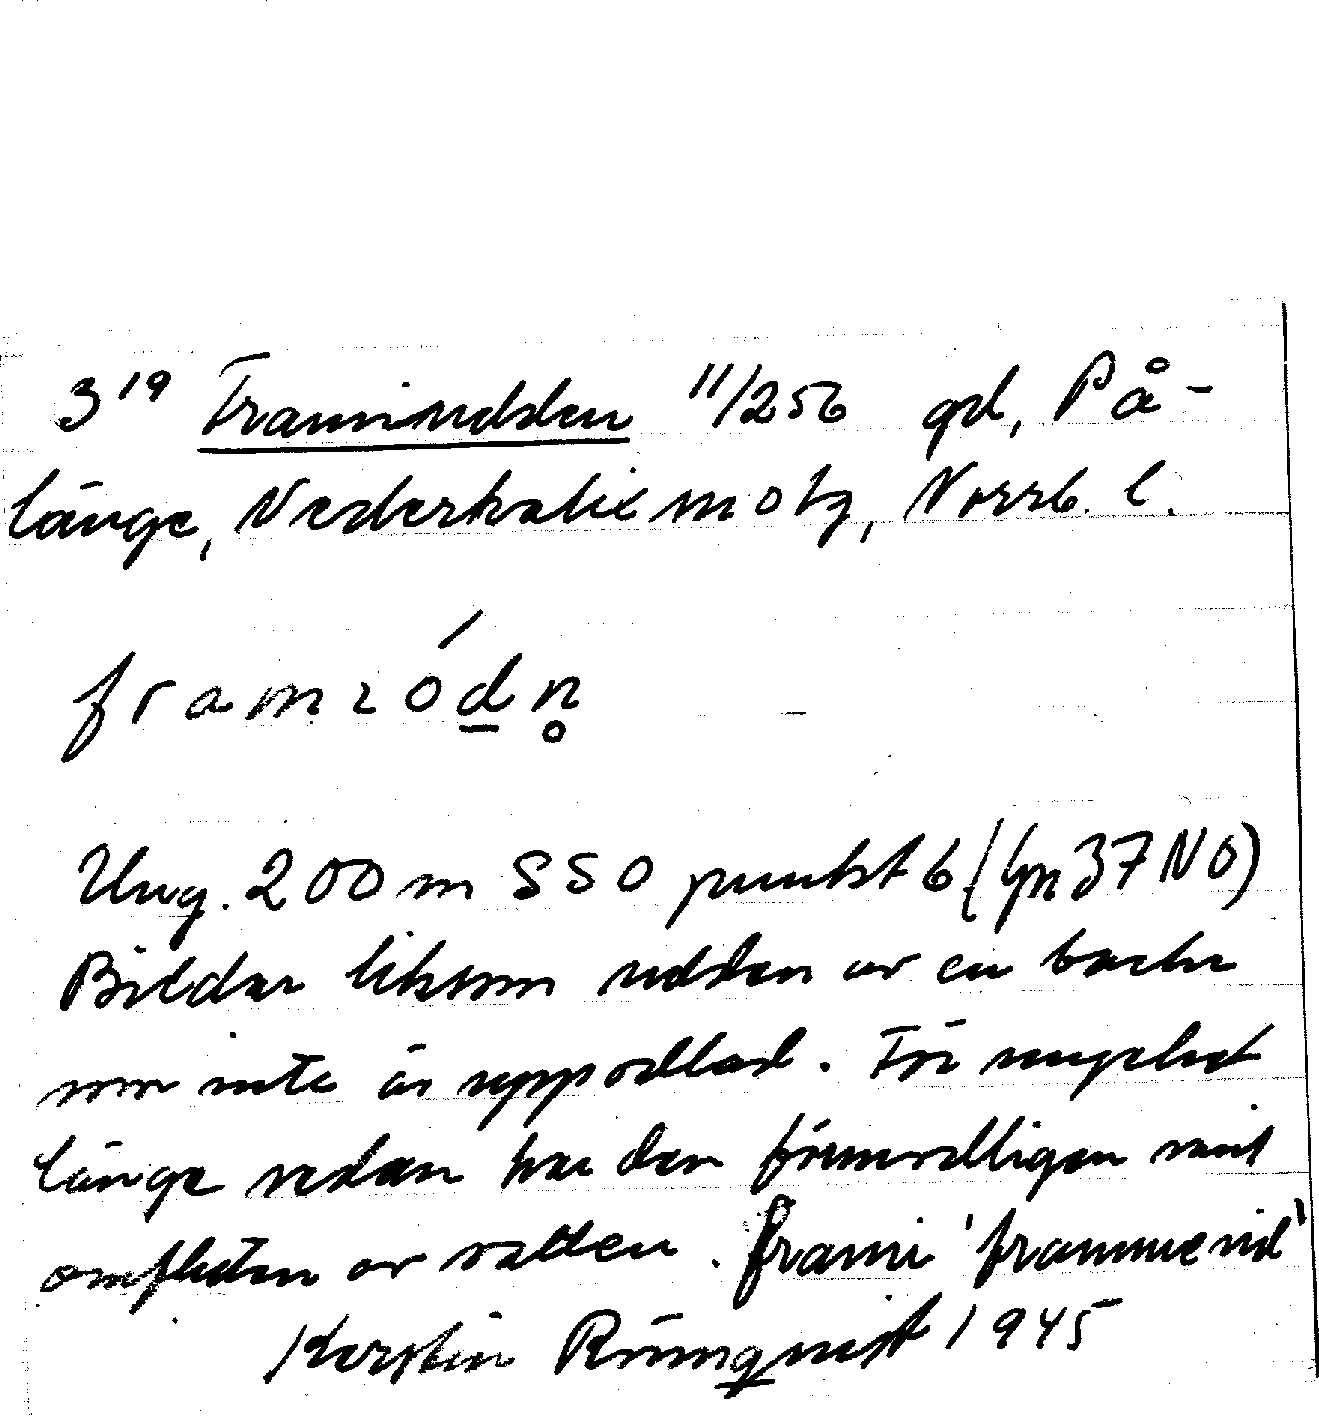 3¹⁹ Framiudden 11/256 gd, På-
länge, Nederkalix m o tg, Norrb. l.
framɩódn̥
Ung. 200 m SSO punkt 6 (Gn 37 NO)
Bildar liksom udden av en backe
som inte är uppodlad. För mycket
länge sedan har den förmodligen varit
omfluten av vatten. frami 'framme vid'
Kerstin Rönnqvist 1945